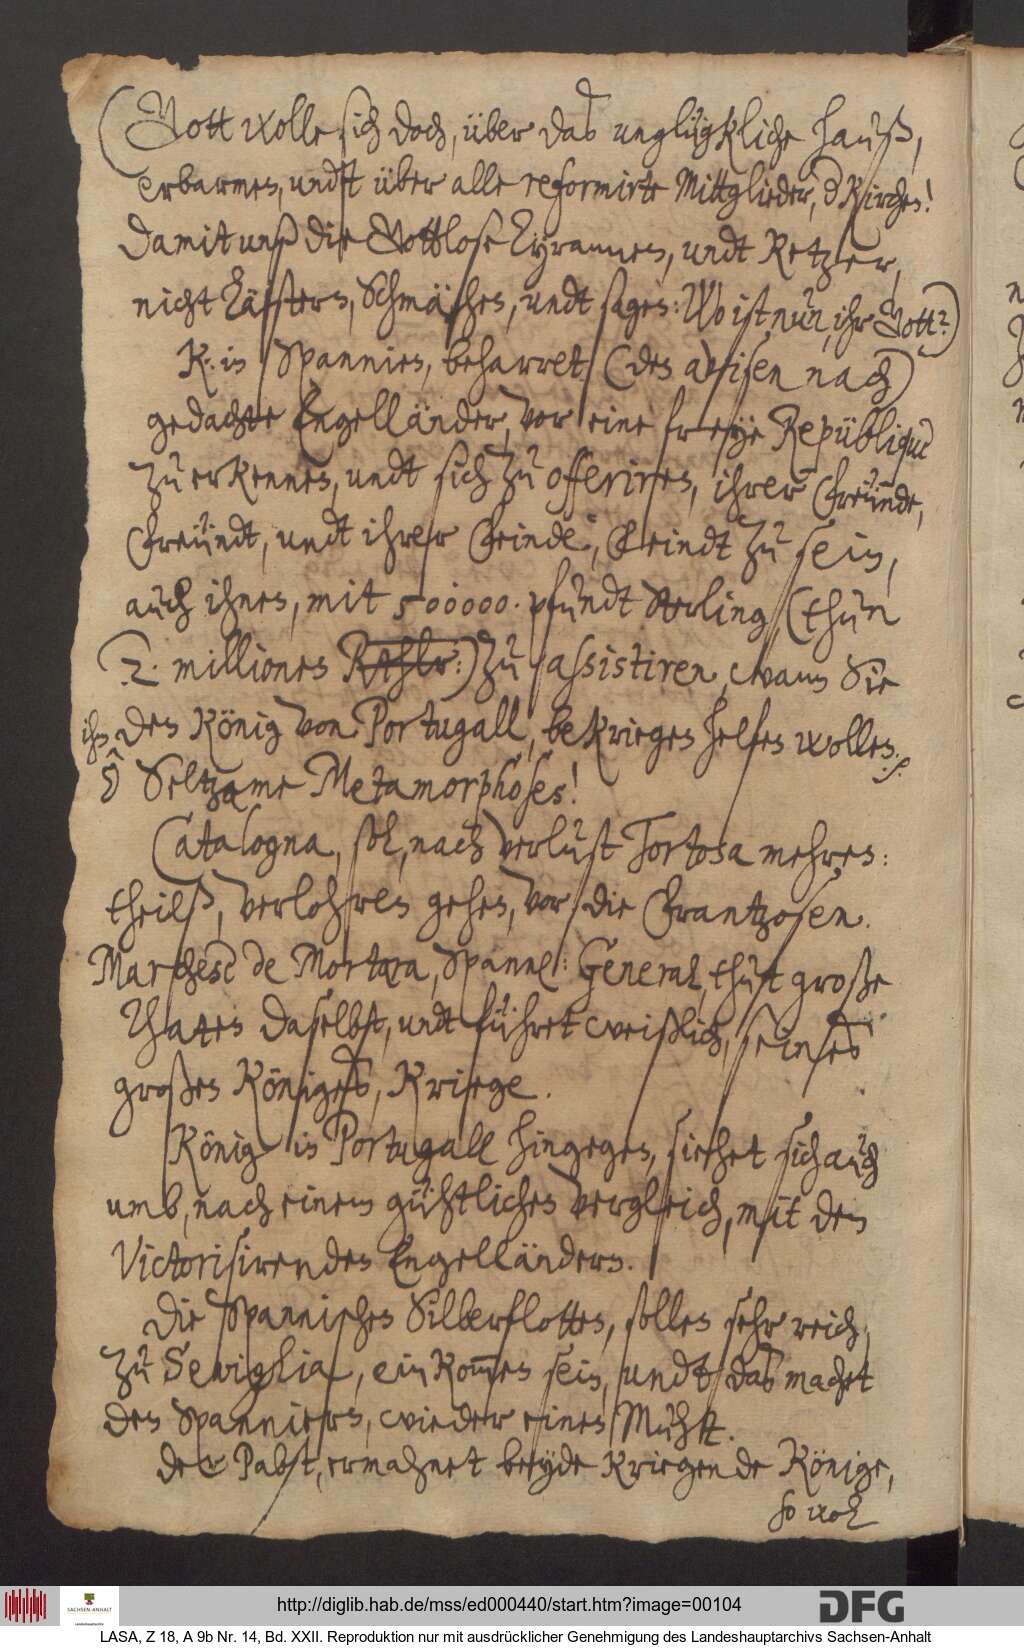 (Gott wolle sich doch, über das unglügkliche hauß,
erbarmen, undt über alle reformirte Mittglieder, d Kirchen!
damit unß die Gottlose Tyrannen, undt Ketzer,
nicht lästern, Schmähen, undt sagen: Wo ist nun, ihr Gott?)
K. in Spannien, beharret (den avisen nach)
gedachte Engelländer, vor eine freye Republique
zu erkennen, undt sich zu offeriren, ihrer Freunde,
Freundt, undt ihrer Feinde, Feindt zu sein,
auch ihnen, mit 500000. pfundt Sterling, (thun
2. millionen Rthlr:) zu assistiren, wann Sie
ihm den König von Portugall, bekriegen helfen wollen.
ô Seltzame Metamorphosen!
Catalogna, sol, nach verlust Tortosa mehren:
theilß, verlohren gehen, vor die Frantzosen.
Marchese de Mortara, Spannl: General, thut große
Thaten daselbst, undt führet weißlich, seines
großen Königes, Kriege.
König in Portugall hingegen, siehet sich auch
umb, nach einem gühtlichen vergleich, mit den
Victorisirenden Engelländern.
Die Spannischen Silberflotten, sollen sehr reich,
zu Seviglia, einkom̅en sein, undt das machet
den Spanniern, wieder einen Muht.
der Pabst, ermahnet beyde Kriegende Könige,
so wol
http://diglib.hab.de/mss/ed000440/start.htm?image=00104
SACHSEN-ANHALT
Landeshauptarchiv
DFG
LASA, Z 18, A 9b Nr. 14, Bd. XXII. Reproduktion nur mit ausdrücklicher Genehmigung des Landeshauptarchivs Sachsen-Anhalt